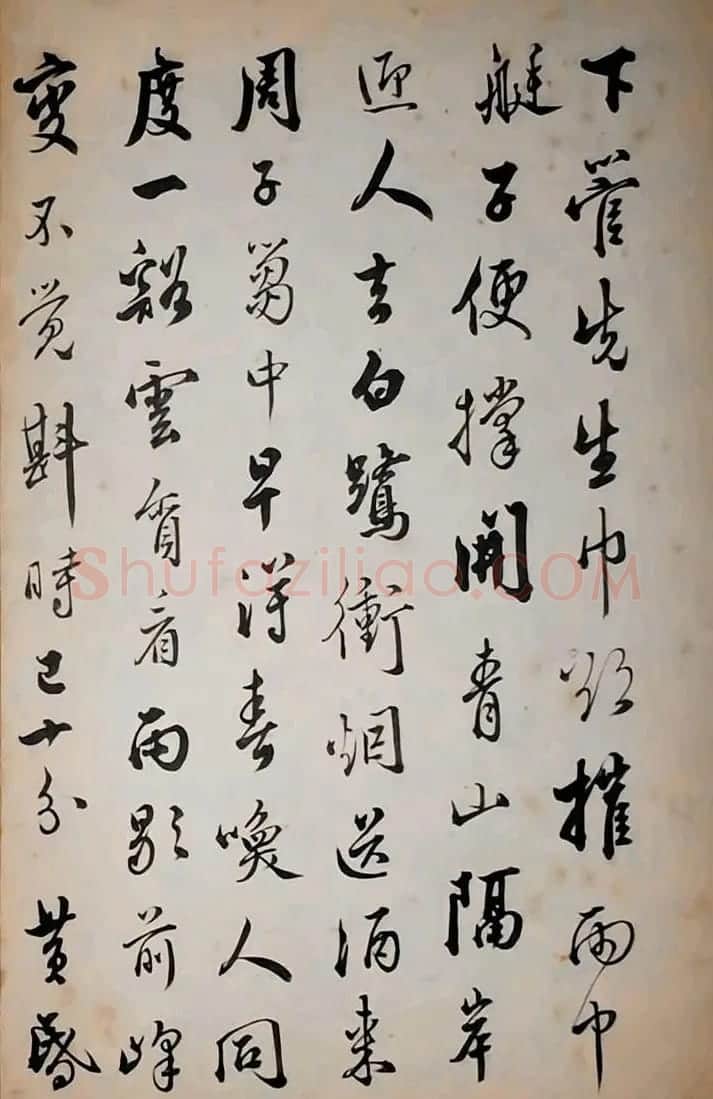 下管先生巾欲摧雨中
艇子便撑開青山隔岸
迎人去白鷺衝烟送酒来
周子中早淂春喚人同
度一谿雲貪看雨歇前峰
變不覺斟時已十分黄昏
Shufaziliao.COM